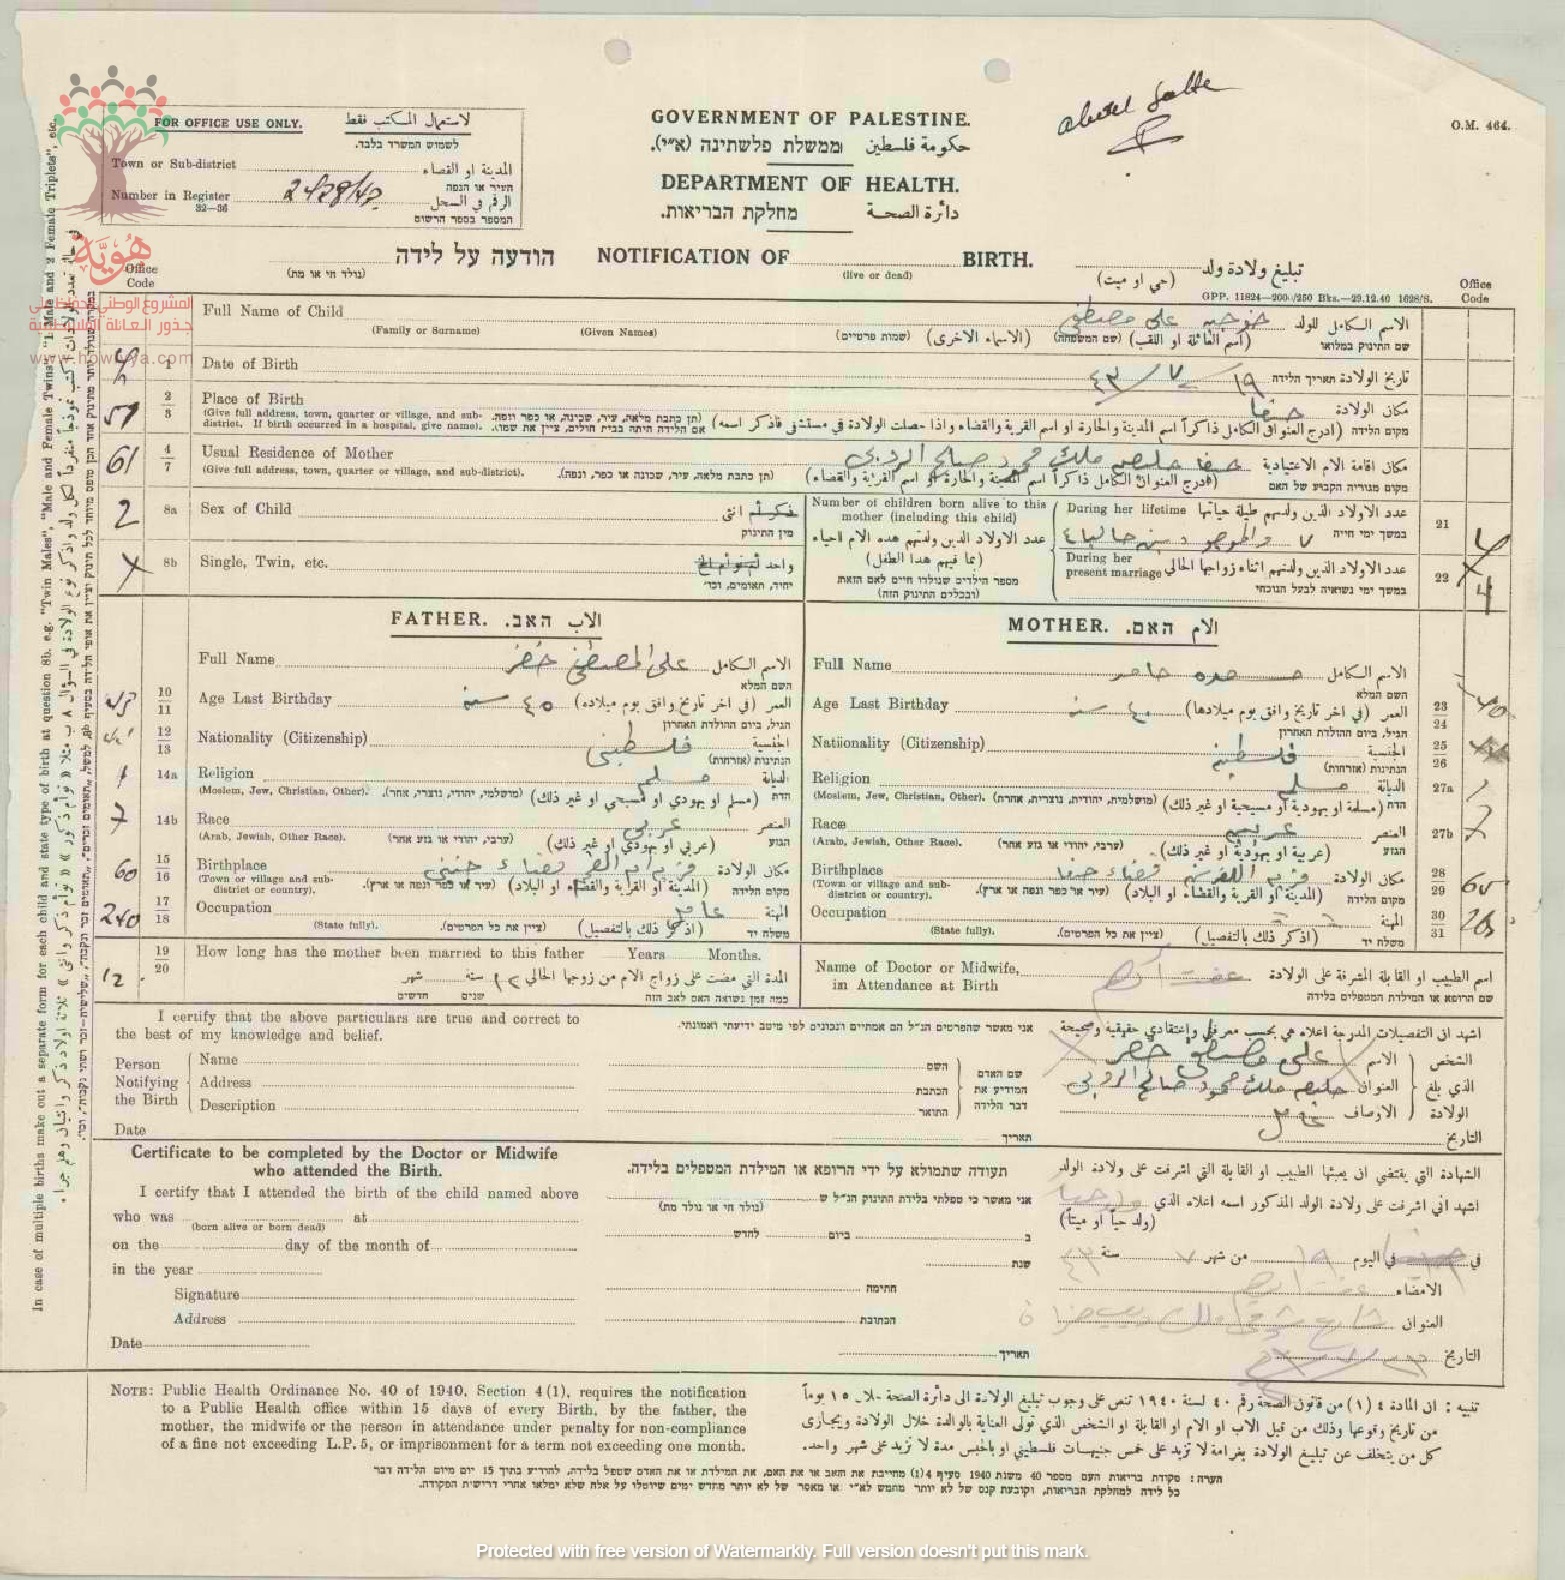 abdel
O.M. 464.
FOR OFFICE USE ONLY. لاستعمال المكتب فقط
לשמוש המשרד בלבד.
Town or Sub-district المدينة او القضاء
העיר או הנפה
Number in Register الرقم في السجل
32—36 המספר בספר הרשום
GOVERNMENT OF PALESTINE.
حكومة فلسطين ממשלת פלשתינה (א״י).
DEPARTMENT OF HEALTH.
دائرة الصحة מחלקת הבריאות.
הודעה על לידה NOTIFICATION OF BIRTH. تبليغ ولادة ولد
(נולד חי או מת) (live or dead) (حي او ميت)
GPP. 11824—200/250 Bks.—23.12.40 1628/S.
Office Code
Office Code
هُويَّة
المشروع الوطني للحفاظ على
جذور العائلة الفلسطينية
www.howiyya.com
Full Name of Child علي مصطفى الاسم الكامل للولد
(Family or Surname) (Given Names) (שמות פרטיים) (الاسماء الاخرى) (שם המשפחה) (اسم العائلة او اللقب) שם התינוק במלואו
1 Date of Birth ١٩ / ٧ / ٤٣ תאריך הלידה تاريخ الولادة
51 2/3 Place of Birth حيفا مكان الولادة
(Give full address, town, quarter or village, and sub-district. If birth occurred in a hospital, give name). (תן כתבת מלאה, עיר, שכונה, או כפר ונפה. אם הלידה היתה בבית חולים, ציין את שמו). (ادرج العنوان الكامل ذاكراً اسم المدينة والحارة او اسم القرية والقضاء واذا حصلت الولادة في مستشفى فاذكر اسمه) מקום הלידה
61 4/7 Usual Residence of Mother حيفا ملك محمود صالح مكان اقامة الام الاعتيادية
(Give full address, town, quarter or village, and sub-district). (תן כתבת מלאה, עיר, שכונה או כפר, ונפה). (ادرج العنوان الكامل ذاكراً اسم المدينة والحارة او اسم القرية والقضاء) מקום מגוריה הקבוע של האם
2 8a Sex of Child ذكر انثى
מין התינוק
8b Single, Twin, etc. واحد
יחיד, תאומים, וכו׳
Number of children born alive to this mother (including this child)
عدد الاولاد الذين ولدتهم هذه الام احياء
(بما فيهم هذا الطفل)
מספר הילדים שנולדו חיים לאם הזאת
(ובכללם התינוק הזה)
During her lifetime عدد الاولاد الذين ولدتهم طيلة حياتها 21
במשך ימי חייה ٧
During her present marriage عدد الاولاد الذين ولدتهم اثناء زواجها الحالي 22 4
במשך ימי נשואיה לבעל הנוכחי
FATHER. الاب האב.
Full Name علي المصطفى خضر الاسم الكامل
השם המלא
10/11 Age Last Birthday ٤٥ سنة العمر (في آخر تاريخ وافق يوم ميلاده)
הגיל, ביום ההולדת האחרון
12/13 Nationality (Citizenship) فلسطيني الجنسية
הנתינות (אזרחות)
1 14a Religion مسلم الديانة
(Moslem, Jew, Christian, Other). (מושלמי, יהודי, נוצרי, אחר). (مسلم او يهودي او مسيحي او غير ذلك) הדת
7 14b Race عربي العنصر
(Arab, Jewish, Other Race). (ערבי, יהודי או גזע אחר) (عربي او يهودي او غير ذلك) הגזע
60 15/16 Birthplace قرية ام الفحم قضاء جنين مكان الولادة
(Town or village and sub-district or country). (עיר או כפר ונפה או ארץ). (المدينة او القرية والقضاء او البلاد) מקום הלידה
240 17/18 Occupation عامل المهنة
(State fully). (ציין את כל הפרטים). (اذكر ذلك بالتفصيل) משלח יד
MOTHER. الام האם.
Full Name حامد الاسم الكامل
השם המלא
Age Last Birthday ٤٠ سنة العمر (في آخر تاريخ وافق يوم ميلادها) 23/24 40
הגיל, ביום ההולדת האחרון
Natiionality (Citizenship) فلسطينية الجنسية 25/26
הנתינות (אזרחות)
Religion مسلمة الديانة 27a 1
(Moslem, Jew, Christian, Other). (מושלמית, יהודית, נוצרית, אחרת) (مسلمة او يهودية او مسيحية او غير ذلك) הדת
Race عربية العنصر 27b 7
(Arab, Jewish, Other Race). (ערבי, יהודי או גזע אחר) (عربية او يهودية او غير ذلك) הגזע
Birthplace قرية قضاء حيفا مكان الولادة 28/29
(Town or village and sub-district or country). (עיר או כפר ונפה או ארץ). (المدينة او القرية والقضاء او البلاد) מקום הלידה
Occupation المهنة 30/31
(State fully). (ציין את כל הפרטים). (اذكر ذلك بالتفصيل) משלח יד
12 19/20 How long has the mother been married to this father Years Months.
المدة التي مضت على زواج الام من زوجها الحالي ١٢ سنة شهر
כמה זמן נשואה האם לאב הזה שנים חדשים
Name of Doctor or Midwife, in Attendance at Birth اسم الطبيب او القابلة المشرفة على الولادة
שם הרופא או המילדת המטפלים בלידה
I certify that the above particulars are true and correct to the best of my knowledge and belief.
אני מאשר שהפרטים הנ״ל הם אמתיים ונכונים לפי מיטב ידיעתי ואמונתי.
اشهد ان التفصيلات المدرجة اعلاه هي بحسب معرفتي واعتقادي حقيقية وصحيحة
Person Notifying the Birth
Name השם علي مصطفى خضر الاسم
Address הכתבת ملك محمود صالح العنوان
Description התואר عامل الاوصاف
שם האדם המודיע את דבר הלידה
الشخص الذي بلغ الولادة
Date תאריך التاريخ
Certificate to be completed by the Doctor or Midwife who attended the Birth.
תעודה שתמולא על ידי הרופא או המילדת המטפלים בלידה.
الشهادة التي يقتضي ان يعبئها الطبيب او القابلة التي اشرفت على ولادة الولد
I certify that I attended the birth of the child named above
אני מאשר כי טפלתי בלידת התינוק הנ״ל ש
اشهد اني اشرفت على ولادة الولد المذكور اسمه اعلاه الذي ولد حياً
who was at (נולד חי או נולד מת) (ولد حياً او ميتاً)
(born alive or born dead)
on the day of the month of ב ביום לחדש في في اليوم ١٩ من شهر ٧ سنة ٤٣
in the year שנת
Signature חתימה الامضاء
Address הכתובת العنوان شارع
Date תאריך التاريخ
NOTE: Public Health Ordinance No. 40 of 1940, Section 4(1), requires the notification
to a Public Health office within 15 days of every Birth, by the father, the
mother, the midwife or the person in attendance under penalty for non-compliance
of a fine not exceeding L.P. 5, or imprisonment for a term not exceeding one month.
تنبيه : ان المادة ٤ (١) من قانون الصحة رقم ٤٠ لسنة ١٩٤٠ تنص على وجوب تبليغ الولادة الى دائرة الصحة خلال ١٥ يوماً
من تاريخ وقوعها وذلك من قبل الاب او الام او القابلة او الشخص الذي تولى العناية بالوالدة خلال الولادة ويجازى
كل من يتخلف عن تبليغ الولادة بغرامة لا تزيد على خمس جنيهات فلسطيني او بالحبس مدة لا تزيد على شهر واحد.
הערה: פקודת בריאות העם מספר 40 משנת 1940 סעיף 4(1) מחייבת את האב או את האם, את המילדת או את האדם שטפל בלידה, להודיע בתוך 15 יום מיום הלידה דבר
כל לידה למחלקת הבריאות, וקובעת קנס של לא יותר מחמש לא״י או מאסר של לא יותר מחדש ימים שיוטלו על אלה שלא ימלאו אחרי דרישות הפקודה.
In case of multiple births make out a separate form for each child and state type of birth at question 8b. e.g. "Twin Males", "Male and Female Twins", "1 Male and 2 Female Triplets", etc.
Protected with free version of Watermarkly. Full version doesn't put this mark.